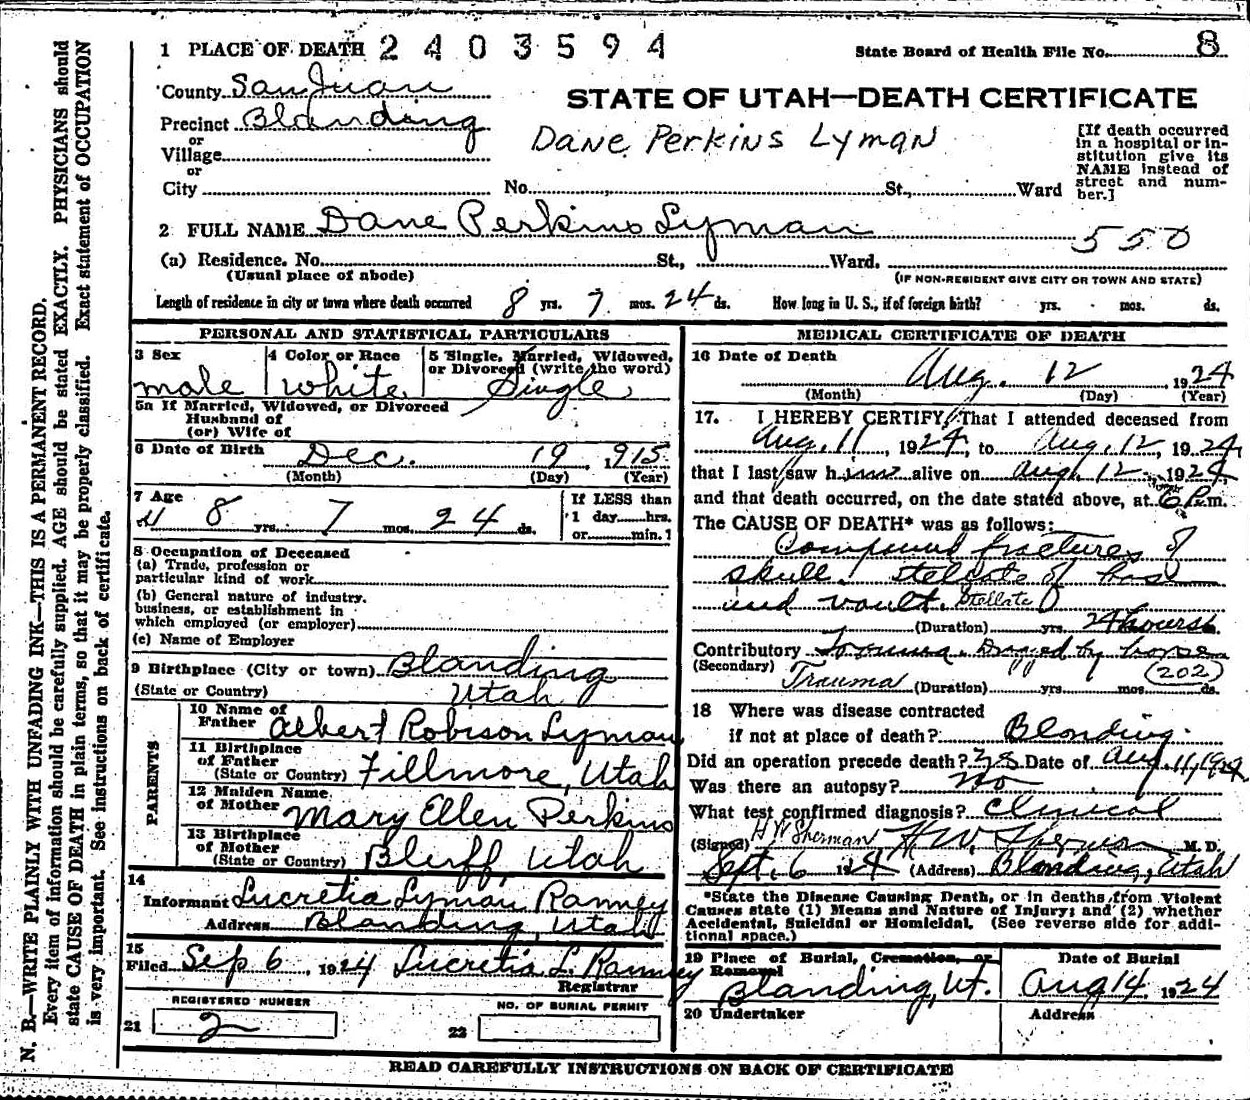 1 PLACE OF DEATH 2403594
State Board of Health File No. 8
County San Juan
STATE OF UTAH—DEATH CERTIFICATE
Precinct Blanding
or
Village
or
City No. St., Ward
Dane Perkins Lyman
[If death occurred
in a hospital or in-
stitution give its
NAME instead of
street and num-
ber.]
2 FULL NAME Dane Perkins Lyman
550
(a) Residence. No. St., Ward.
(Usual place of abode) (IF NON-RESIDENT GIVE CITY OR TOWN AND STATE)
Length of residence in city or town where death occurred 8 yrs. 7 mos. 24 ds. How long in U. S., if of foreign birth? yrs. mos. ds.
PERSONAL AND STATISTICAL PARTICULARS
3 Sex
male
4 Color or Race
white
5 Single, Married, Widowed,
or Divorced (write the word)
Single
5a If Married, Widowed, or Divorced
Husband of
(or) Wife of
6 Date of Birth Dec. 19, 915
(Month) (Day) (Year)
7 Age
8 yrs. 7 mos. 24 ds.
If LESS than
1 day hrs.
or min.
8 Occupation of Deceased
(a) Trade, profession or
particular kind of work
(b) General nature of industry.
business, or establishment in
which employed (or employer)
(c) Name of Employer
9 Birthplace (City or town) Blanding
(State or Country) Utah
PARENTS
10 Name of
Father Albert Robison Lyman
11 Birthplace
of Father
(State or Country) Fillmore, Utah
12 Maiden Name
of Mother Mary Ellen Perkins
13 Birthplace
of Mother
(State or Country) Bluff, Utah
14
Informant Lucretia Lyman Ranney
Address Blanding, Utah
15
Filed Sep 6, 1924 Lucretia L. Ranney
Registrar
REGISTERED NUMBER
21 2
NO. OF BURIAL PERMIT
22
MEDICAL CERTIFICATE OF DEATH
16 Date of Death
Aug. 12, 1924
(Month) (Day) (Year)
17. I HEREBY CERTIFY, That I attended deceased from
Aug. 11, 1924, to Aug. 12, 1924,
that I last saw him alive on Aug. 12, 1924,
and that death occurred, on the date stated above, at 6 P.m.
The CAUSE OF DEATH* was as follows:
Compound fractures of
skull. stellate of bas
and vault. Stellate
(Duration) yrs. 24 hours
Contributory Trauma. Dragged by horse
(Secondary) Trauma (202)
(Duration) yrs. mos. ds.
18 Where was disease contracted
if not at place of death? Blanding.
Did an operation precede death? Yes Date of Aug. 11, 1924
Was there an autopsy? No
What test confirmed diagnosis? Clinical
(Signed) H W Sherman H. W. Sherman M. D.
Sept. 6 1924 (Address) Blanding, Utah
*State the Disease Causing Death, or in deaths from Violent
Causes state (1) Means and Nature of Injury; and (2) whether
Accidental, Suicidal or Homicidal. (See reverse side for addi-
tional space.)
19 Place of Burial, Cremation, or
Removal
Blanding, Ut.
Date of Burial
Aug 14, 1924
20 Undertaker
Address
READ CAREFULLY INSTRUCTIONS ON BACK OF CERTIFICATE
N. B.—WRITE PLAINLY WITH UNFADING INK—THIS IS A PERMANENT RECORD.
Every item of information should be carefully supplied. AGE should be stated EXACTLY. PHYSICIANS should
state CAUSE OF DEATH in plain terms, so that it may be properly classified. Exact statement of OCCUPATION
is very important. See instructions on back of certificate.